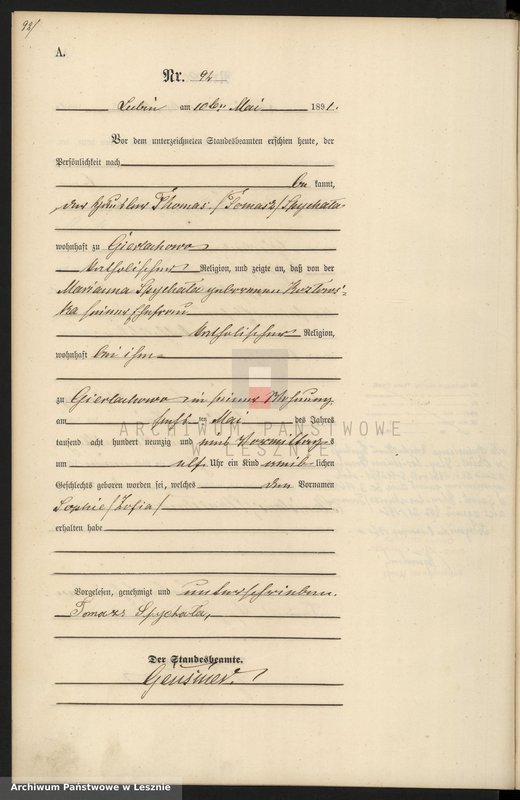 92/
A.
Nr. 92
Lubin am 10ten Mai 1891.
Vor dem unterzeichneten Standesbeamten erschien heute, der
Persönlichkeit nach
be kannt,
der Häusler Thomas /Tomasz/ Spychała
wohnhaft zu Gierlachowo
katholischer Religion, und zeigte an, daß von der
Marianna Spychała geborenen Kozłows-
ka seiner Ehefrau
katholischer Religion,
wohnhaft bei ihm
zu Gierlachowo in seiner Wohnung
am ten Mai des Jahres
tausend acht hundert neunzig und eins Vormittags
um elf Uhr ein Kind weib lichen
Geschlechts geboren worden sei, welches den Vornamen
Sophie /Zofia/
erhalten habe
Vorgelesen, genehmigt und unterschrieben.
Tomasz Spychała,
Der Standesbeamte.
ARCHIWUM PAŃSTWOWE
W LESZNIE
Archiwum Państwowe w Lesznie